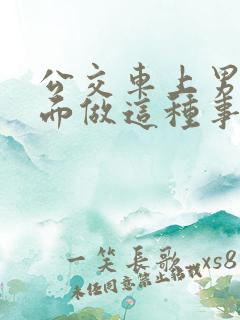 公交車上男
而做這種事
一笑長歌 xs8
未經同意禁止轉載